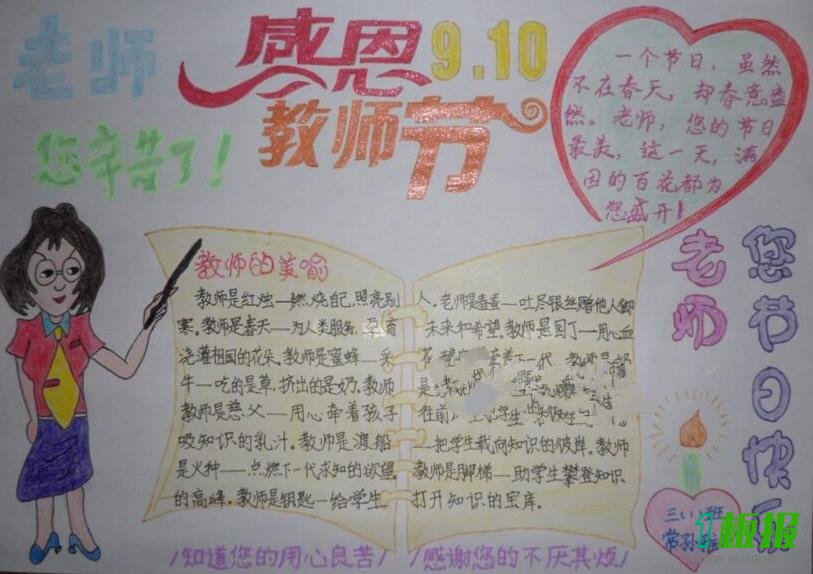 老师
您辛苦了!
感恩
9.10
教师节
一个节日,虽然
不在春天,却春意盎
然。老师,您的节日
最美,这一天,满
园的百花都为
您盛开!
教师的美喻
教师是红烛——燃烧自己,照亮别
寒。教师是春天——为人类服务,孕育
浇灌祖国的花朵。教师是蜜蜂——采
牛——吃的是草,挤出的是奶。教师
教师是慈父——用心牵着孩子
吸知识的乳汁。教师是渡船
是火种——点燃下一代求知的欲望
的高峰。教师是钥匙——给学生
人。老师是春蚕——吐尽银丝赠他人御
未来和希望。教师是园丁——用心血
下一代 教师是
是
往前 学生
——把学生载向知识的彼岸。教师
教师是脚梯——助学生攀登知识
打开知识的宝库。
/知道您的用心良苦/
/感谢您的不厌其烦/
老师
您节日快
三(1)班
常孙
板报